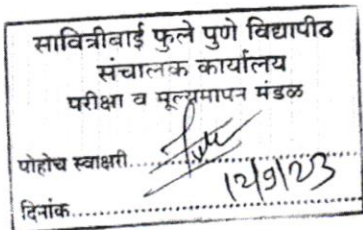 सावित्रीबाई फुले पुणे विद्यापीठ
संचालक कार्यालय
परीक्षा व मूल्यमापन मंडळ
पोहोच स्वाक्षरी....................
दिनांक.................... 12/9/23